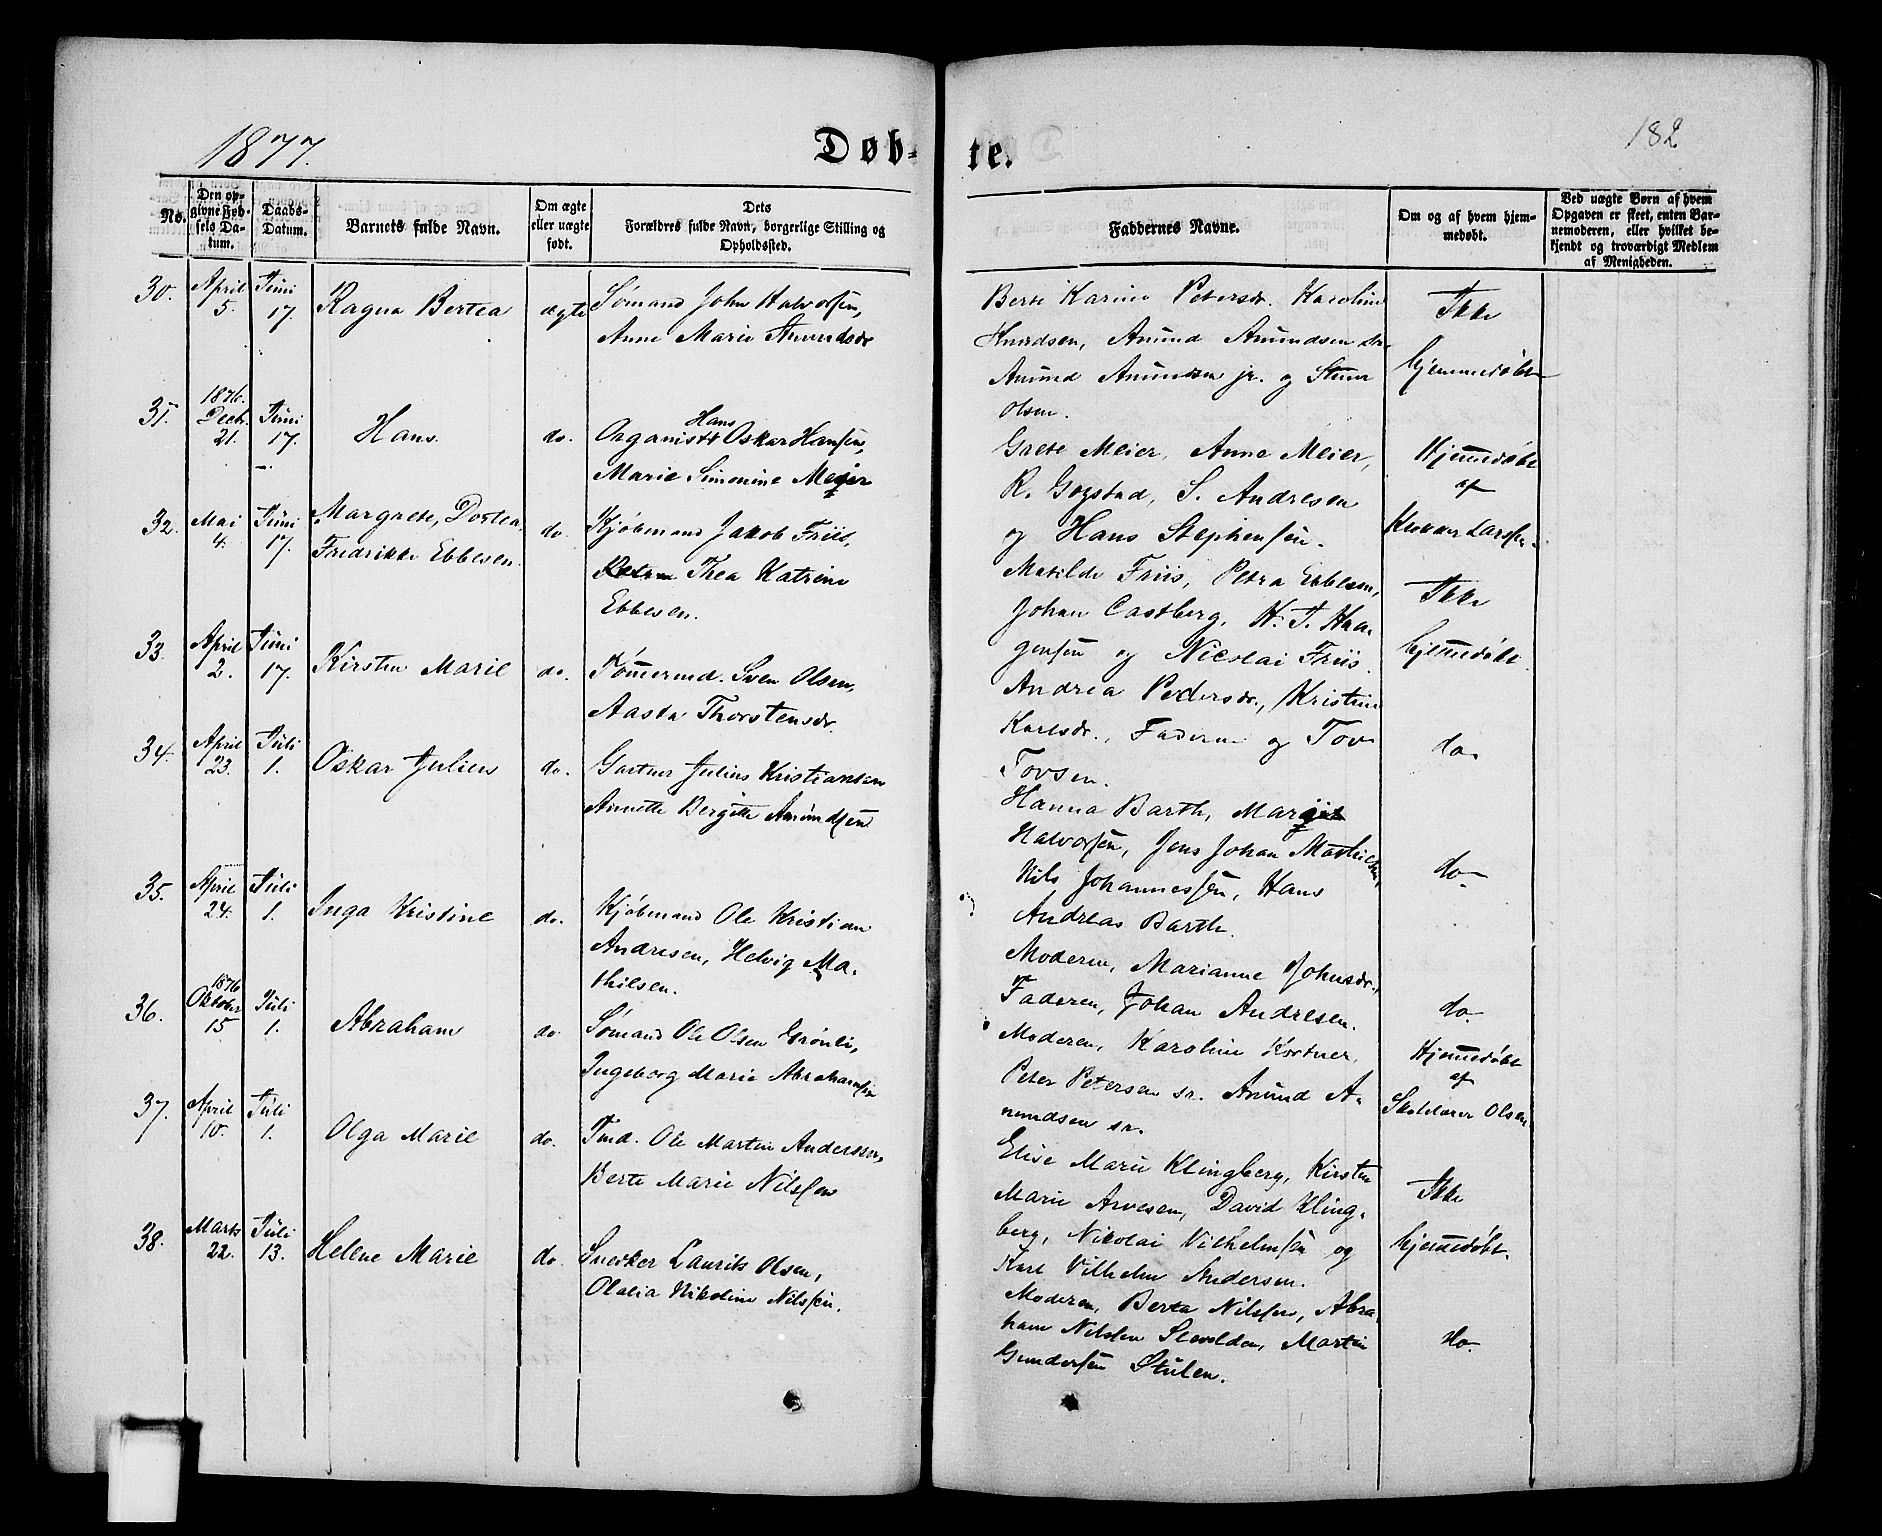 1877.
Døb-
te.
182
No.
Den op-
givne Fød-
sels Da-
tum.
Daabs-
Datum.
Barnets fulde Navn.
Om ægte
eller uægte
født.
Dets
Forældres fulde Navn, borgerlige Stilling og
Opholdssted.
Faddernes Navne.
Om og af hvem hjem-
medøbt.
Ved uægte Børn af hvem
Opgaven er skeet, enten Bar-
nemoderen, eller hvilket be-
kjendt og troværdigt Medlem
af Menigheden.
30.
April
5.
Juni
17.
Ragna Bertea
ægte
Sømand John Halvorsen,
Anne Marie Anundsdr
Berte Karine Petersdr. Karoline
Knudsen, Anund Anundsen sr.
Anund Anundsen jr. og
Olsen.
Ikke
hjemmedøbt
31.
1876.
Decbr.
21.
Juni
17.
Hans.
do.
Hans
Organist Oskar Hansen,
Marie Simonine Meier
Grete Meier, Anne Meier,
R. Gogstad, S. Andresen
og Hans Stephensen.
Hjemmedøbt
af
Klokker Larssen.
32.
Mai
4.
Juni
17.
Margrete, Dortea,
Fredrikke Ebbesen.
do.
Kjøbmand Jakob Friis,
Thea Katrine
Ebbesen.
Matilde Friis, Petra Ebbesen,
Johan Castberg, H. T. Haa-
gensen og Nicolai Friis.
Ikke
hjemmedøbt.
33.
April
2.
Juni
17.
Kirsten Marie
do.
Tømermd. Sven Olsen,
Aasta Thorstensdr.
Andrea Pedersdr., Kristine
Karlsdr., Faderen og Tov
Tovsen.
do.
34.
April
23.
Juli
1.
Oskar Julius
do.
Gartner Julius Kristiansen
Annette Bergitte Amundsen
Hanna Barth, Margit
Halvorsen, Jens Johan Mathiesen,
Nils Johannessen, Hans
Andreas Barth.
do.
35.
April
24.
Juli
1.
Inga Kristine
do.
Kjøbmand Ole Kristian
Andresen, Helvig Ma-
thilsen.
Moderen, Marianne Johnsdr.,
Faderen, Johan Andresen.
do.
36.
1876
Oktober
15
Juli
1.
Abraham
do.
Sømand Ole Olsen Grønli,
Ingeborg Marie Abrahamsen
Moderen, Karoline Kortner,
Peter Petersen sr. Anund A-
nundsen sr.
Hjemmedøbt
af
Skolelærer Olsen.
37.
April
10.
Juli
1.
Olga Marie
do.
Tmd. Ole Martin Andersen,
Berte Marie Nilssen
Elise Marie Klingberg, Kirsten
Marie Arvesen, David Kling-
berg, Nikolai Vilhelmsen og
Karl Vilhelm Andersen.
Ikke
hjemmedøbt.
38.
Marts
22.
Juli
13.
Helene Marie
do.
Snedker Laurits Olsen,
Olalia Nikoline Nilssen.
Moderen, Berta Nilssen, Abra-
ham Nilssen Skvolden, Martin
Gundersen Stulen.
do.